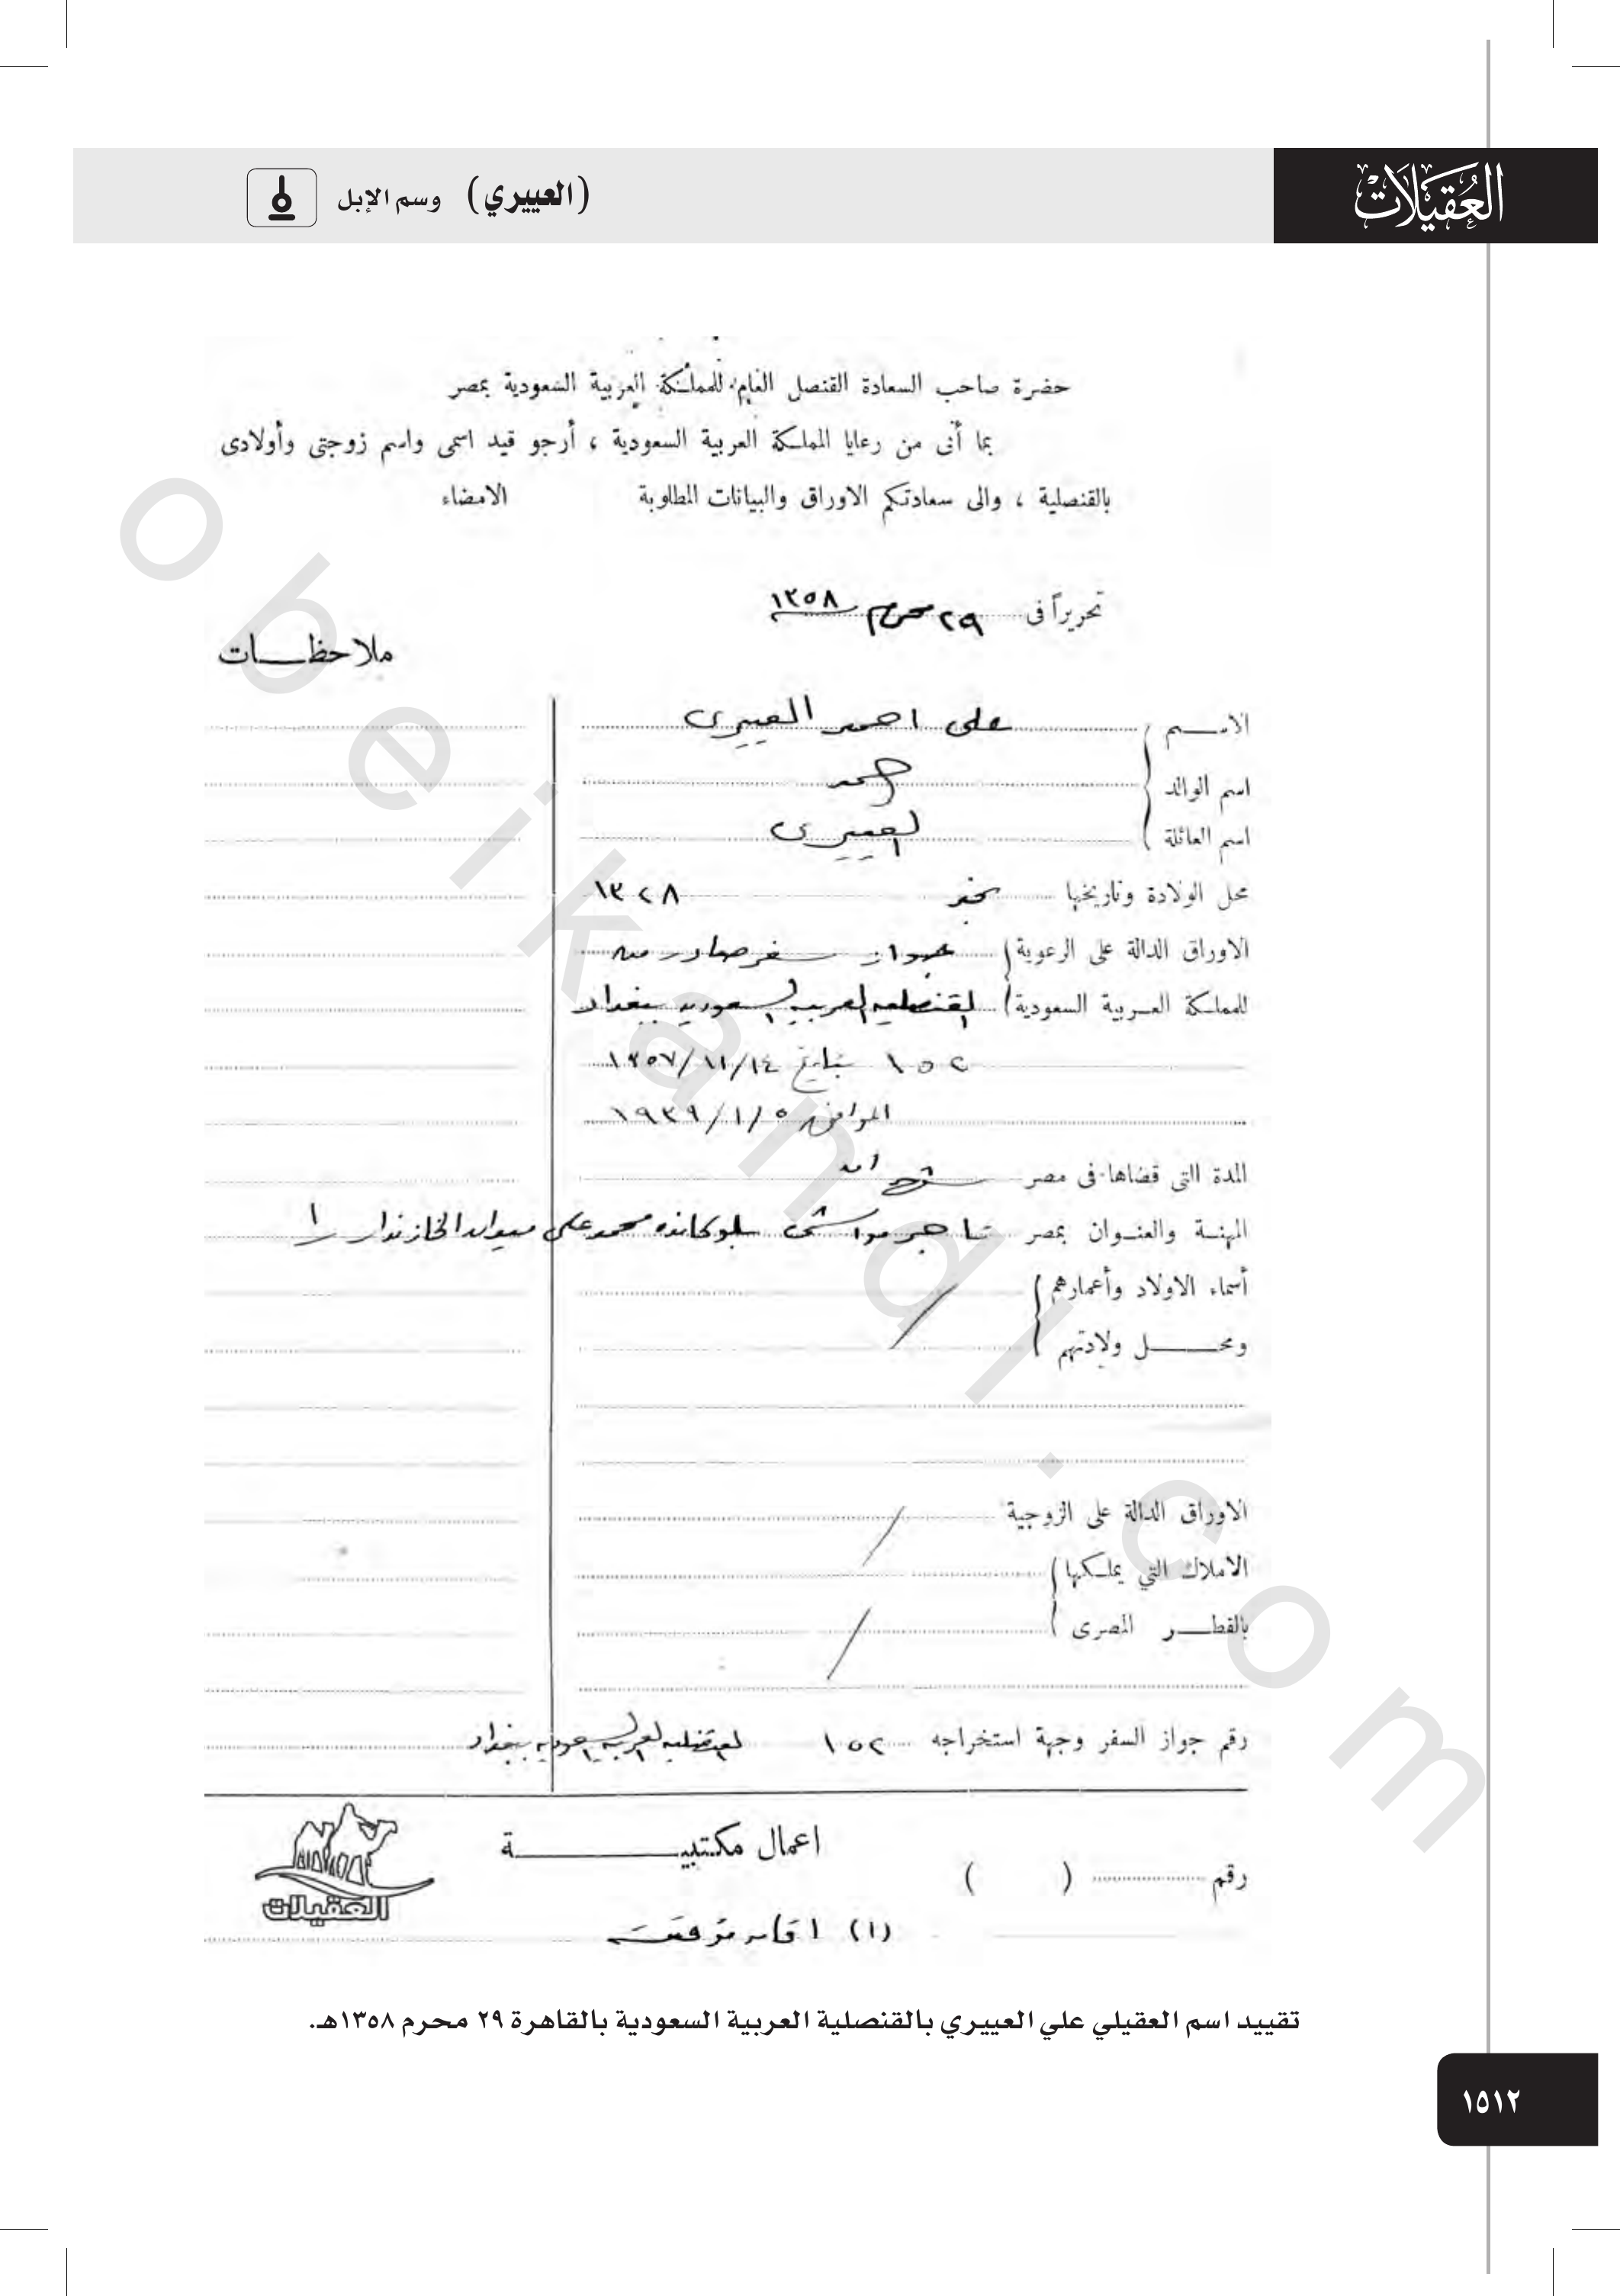 العُقيلات
(العييري) وسم الإبل
حضرة صاحب السعادة القنصل العام للمملكة العربية السعودية بمصر
بما أنى من رعايا المملكة العربية السعودية ، أرجو قيد اسمى واسم زوجتى وأولادى
بالقنصلية ، والى سعادتكم الاوراق والبيانات المطلوبة الامضاء
تحريراً فى ٢٩ محرم ١٣٥٨
ملاحظـــات
الاســـم على احمد العييرى
اسم الوالد حمد
اسم العائلة العييرى
محل الولادة وتاريخها بنجد ١٣٢٨
الاوراق الدالة على الرعوية جواز سفر صادر من
للمملكة العربية السعودية القنصليه العربيه السعوديه ببغداد
١٥٢ بتاريخ ١٣٥٧/١١/١٤
الموافق ١٩٣٩/١/٥
المدة التى قضاها فى مصر
المهنة والعنوان بمصر تاجر مواشى بلوكانده محمد على ميدان الخازندار ١
أسماء الاولاد وأعمارهم
ومحـــل ولادتهم
الاوراق الدالة على الزوجية
الاملاك التي يملكها
بالقطــر المصرى
رقم جواز السفر وجهة استخراجه ١٥٢ القنصليه العربيه السعوديه ببغداد
اعمال مكتبيـــــة
رقم ( )
العقيلات
(١) اقامه مؤقته
تقييد اسم العقيلي علي العييري بالقنصلية العربية السعودية بالقاهرة ٢٩ محرم ١٣٥٨هـ.
١٥١٢
obeikandl.com